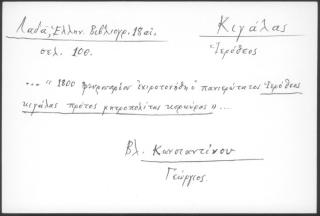 Λαδᾶ, Ἑλλην. Βιβλιογρ. 18 αἰ.
σελ. 100.
Κιγάλας
Ἱερόθεος
... "1800 φευρουαρίου ἐχειροτονήθη ὁ πανιερώτατος Ἱερόθεος
κιγάλας πρῶτος μητροπολίτης κερκύρας" ...
Βλ. Κωνσταντίνου
Γεώργιος.